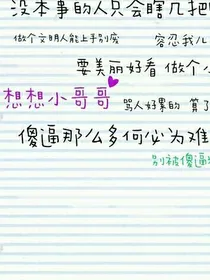 没本事的人只会瞎几把
做个文明人能上手别废
容忍我儿
要美丽好看 做个小
想想小哥哥
骂人好累的 算了
傻逼那么多何必为难
别被傻逼